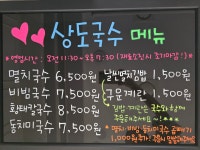 상도국수 메뉴
*영업시간 : 오전 11:30 ~ 오후 7:30 (재료소진시 조기마감)*
멸치국수 6,500원
비빔국수 7,500원
황태칼국수 8,500원
동치미국수 7,500원
날씬멸치김밥 1,500원
구운계란 1,500원
김밥·계란은 국수와 함께
주문해주세요
*멸치·비빔·동치미국수 곱빼기
1,000원 추가!